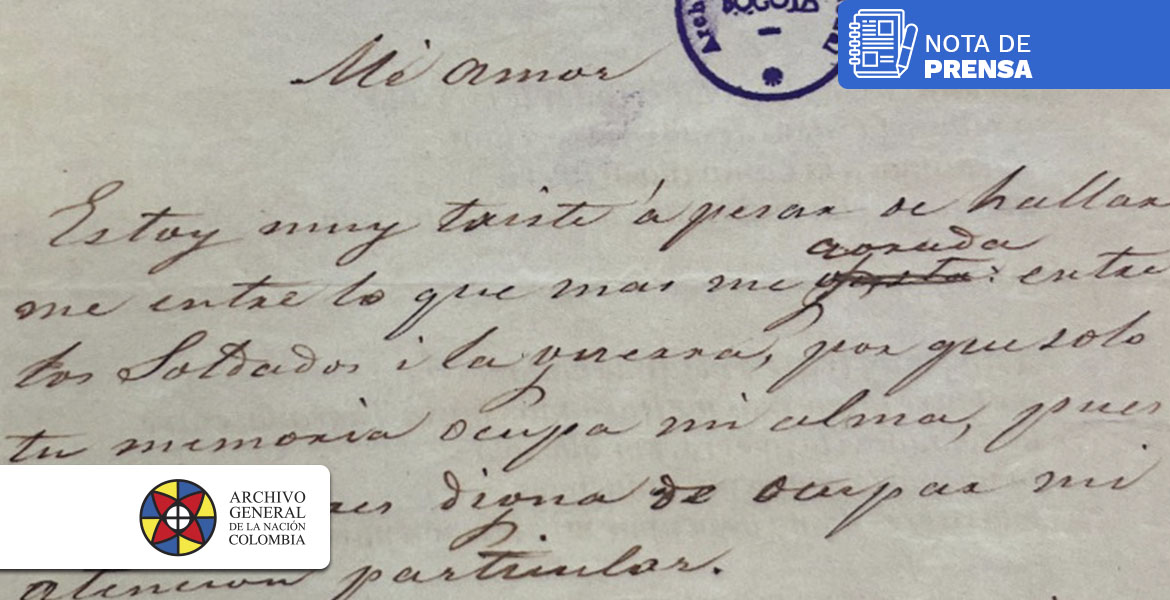 BOGOTA
Arch
NOTA DE
PRENSA
Mi amor
Estoy muy triste á pesar de hallar
agrada
me entre lo que mas me gusta: entre
los Soldados i la guerra, por que solo
tu memoria ocupa mi alma, pues
res digna de ocupar mi
atencion particular.
ARCHIVO
GENERAL
DE LA NACIÓN
COLOMBIA